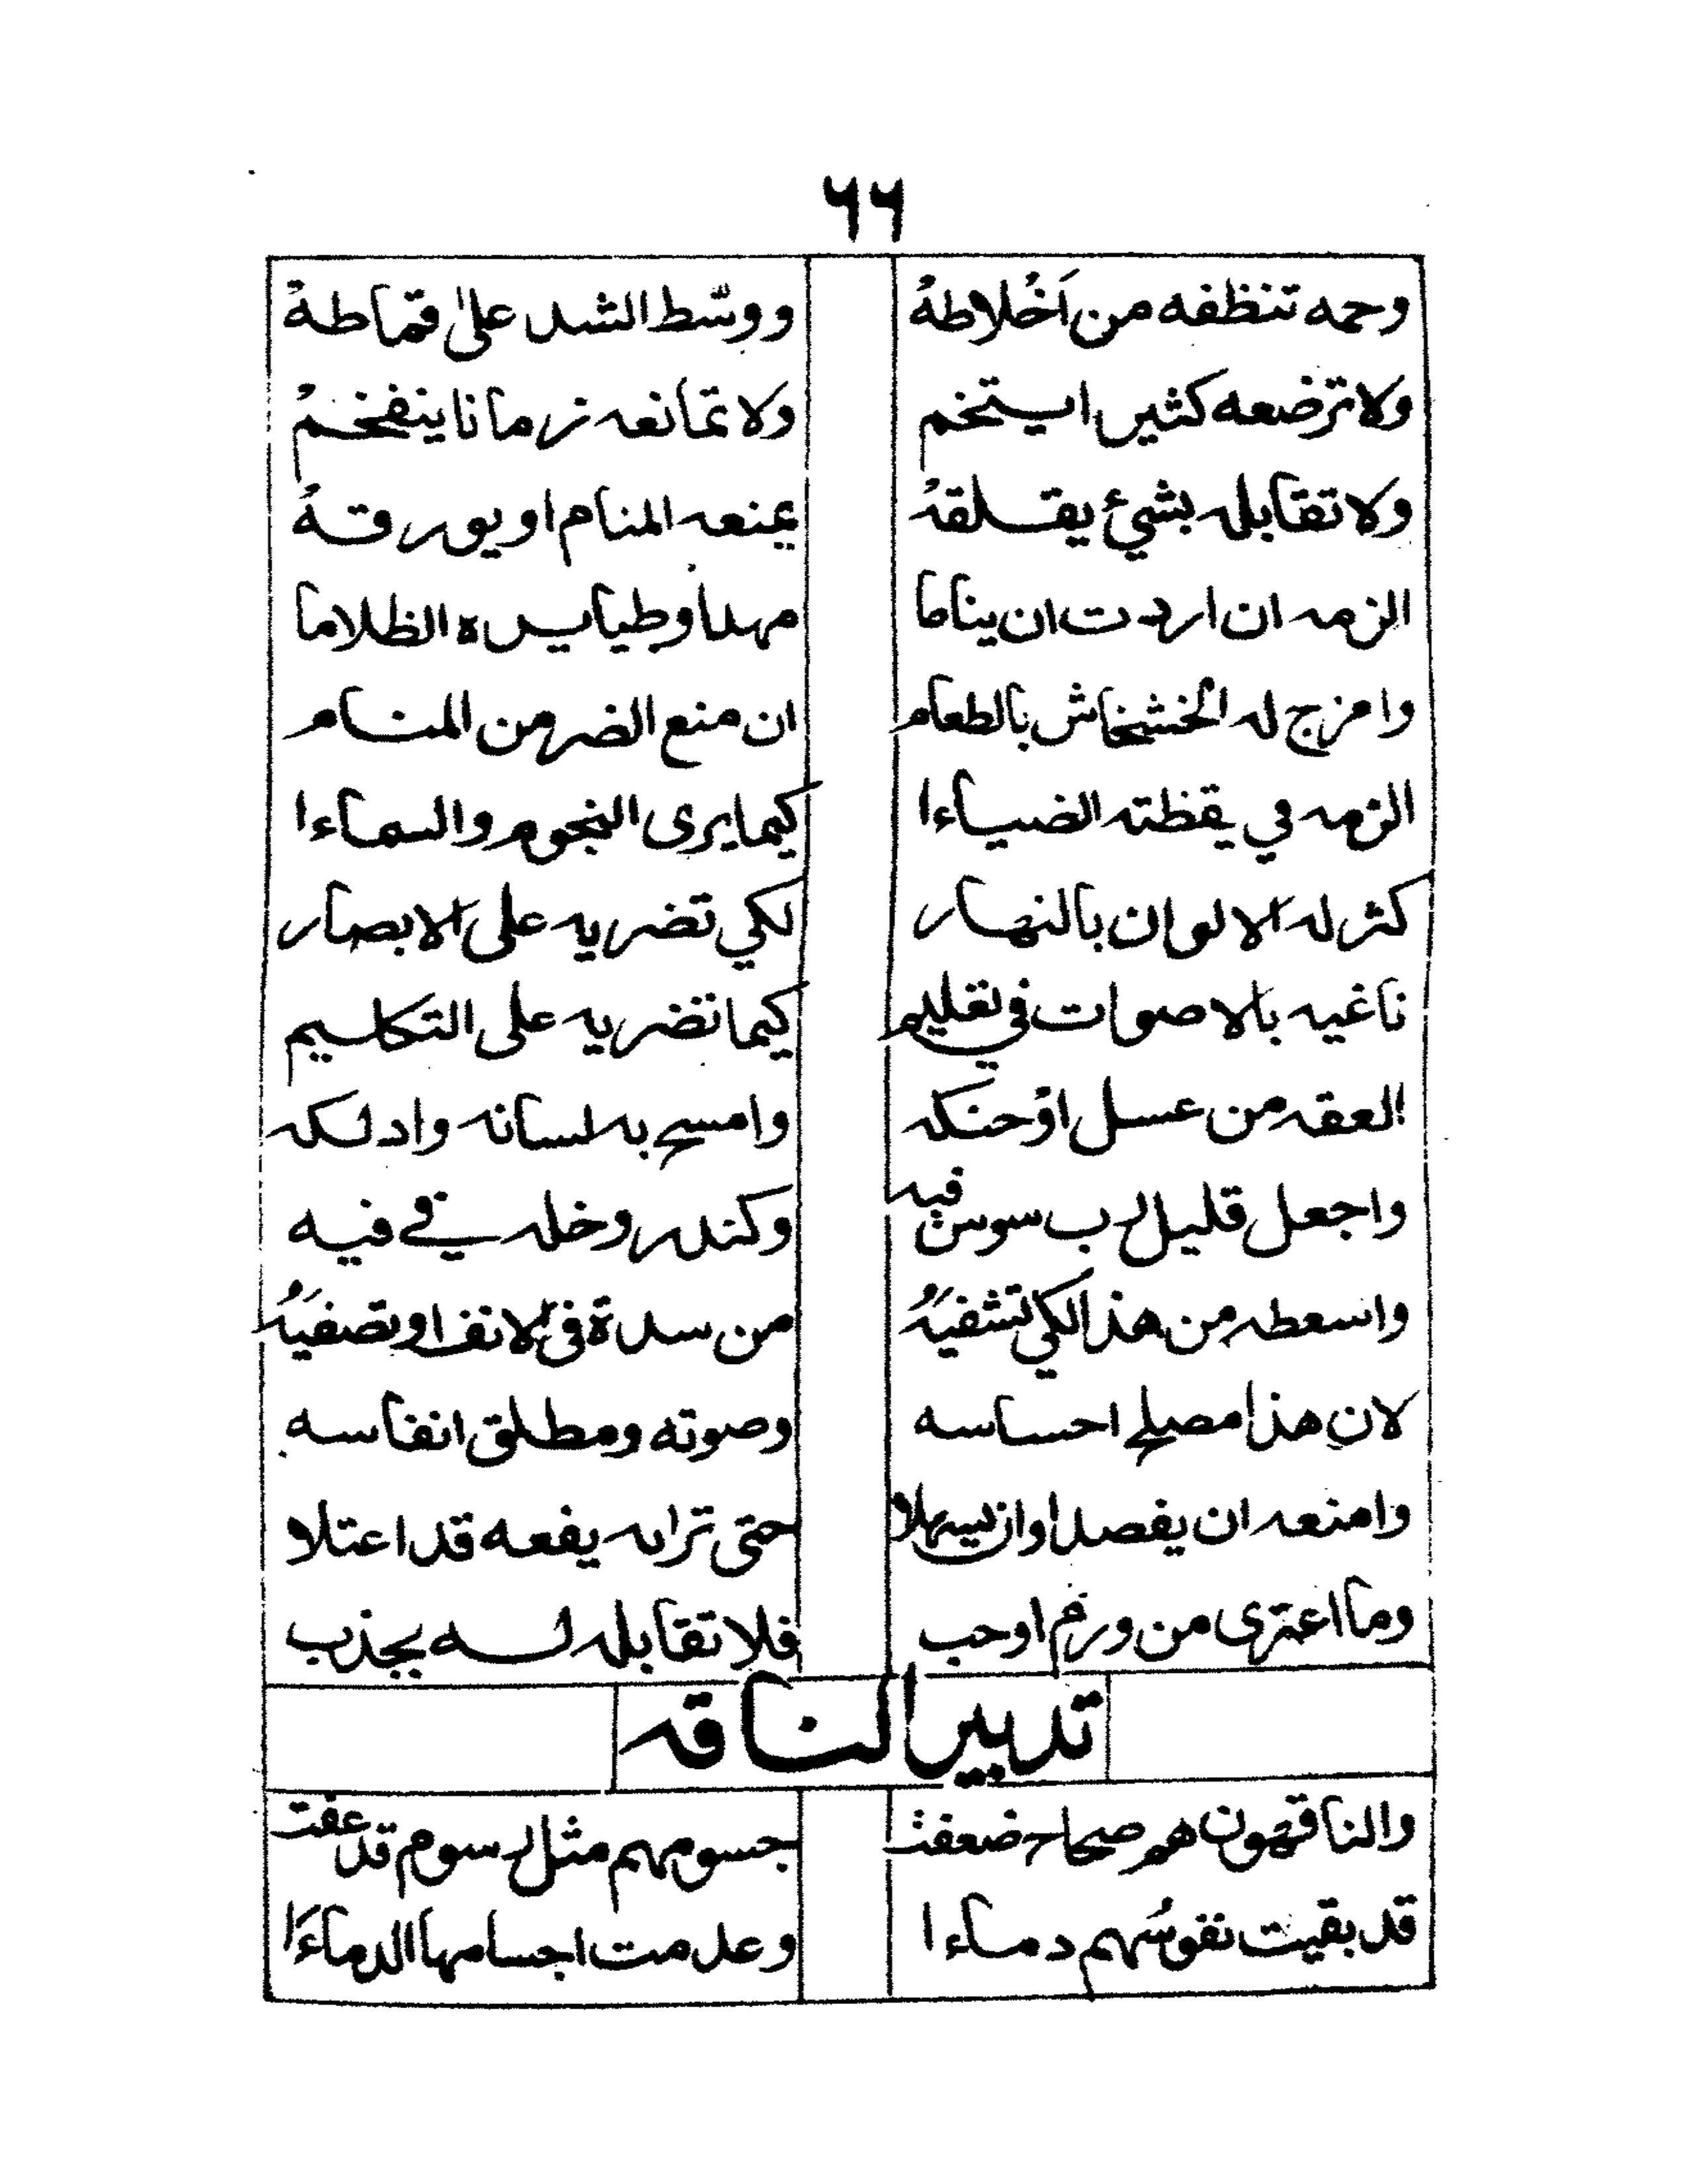 ٦٦
وحمه تنظفه من اَخْلاطهُ ووسّط الشد علىٰ قماطهُ
ولا ترضعه كثيرا يستخم ولا تمانعه زمانا ينفخمُ
ولا تقابله بشيءٍ يقلقهُ يمنعه المنام او يورقهُ
الزمه ان اردت ان يناما مهدا وطيا يسره الظلاما
وامزج له الخشخاش بالطعام ان منع الضر من المنام
الزمه في يقظته الضياءا كيما يرى النجوم والسماءا
كثر له الالوان بالنهار لكي تضريه على الابصار
ناغيه بالاصوات في تعليم كيما تضريه على التكليم
العقه من عسل اوحنكه وامسح به لسانه وادلكه
واجعل قليل رب سوس فيه وكندر وخله في فيه
واسعطه من هذا لكي تشفيَهُ من سدة في الانف او تصفيَهُ
لان هذا مصلح احساسه وصوته ومطلق انفاسه
وامنعه ان يفصد او ان يسهلا حتى تراه يفعه قد اعتلا
وما اعترى من ورم او حب فلا تقابله له بجذب
تدبير الناقه
والناقهون هم صحاح ضعفت جسومهم مثل رسوم قد عفت
قد بقيت نفوسُهم دماءا وعدمت اجسامها الدماءَا